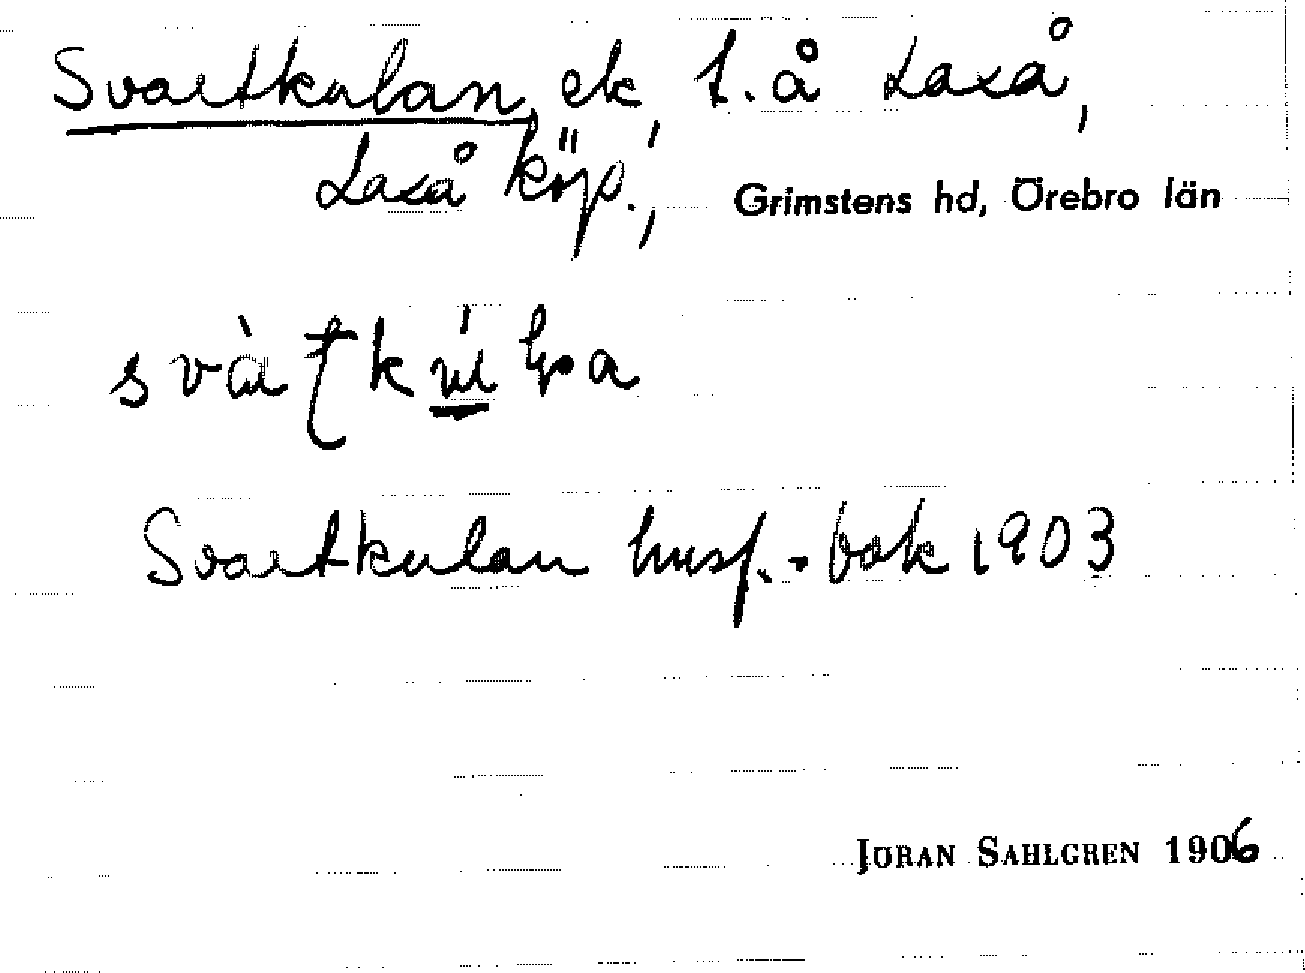 Svartkulan, ek, t. å Laxå,
Laxå köp., Grimstens hd, Örebro län
Svartkulan husf.-bok 1903
JÖRAN SAHLGREN 1906